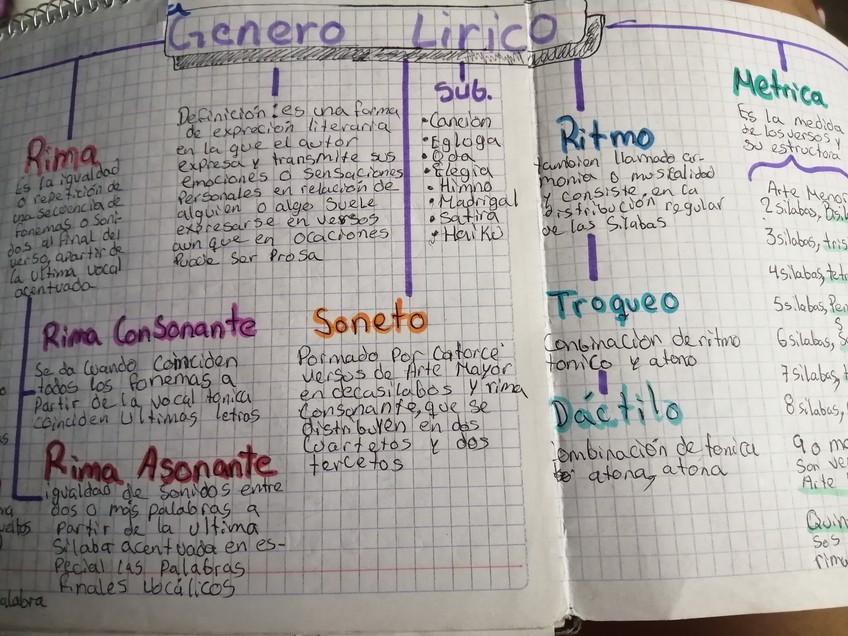 Genero Lirico
Rima
Es la igualdad
o repetición de
una secuencia de
fonemas o soni-
dos al final del
verso, apartir de
la ultima vocal
acentuada
Definición: es una forma
de expreción literaria
en la que el autor
expresa y transmite sus
emociones o sensaciones
Personales en relación de
alguien o algo suele
expresarse en versos
aun que en ocaciones
Puede ser Prosa
Sub.
•Canción
•Egloga
•Oda
•Elegia
•Himno
•Madrigal
•Satira
•Haiku
Rima Consonante
Se da cuando coinciden
todos los fonemas a
Partir de la vocal tonica
coinciden ultimas letras
Rima Asonante
igualdad de sonidos entre
dos o más palabras a
Partir de la ultima
Silaba acentuada en es-
Pecial las Palabras
finales vocálicos
Soneto
Formado por Catorce
versos de Arte Mayor
endecasilabos y rima
Consonante, que se
distribuyen en dos
Cuartetos y dos
tercetos
alabra
Ritmo
tambien llamado ar-
monia o musicalidad
y consiste, en la
distribución regular
de las Silabas
Troqueo
Conbinación de ritmo
tonico y atono
Dáctilo
ombinación de tonica
atona, atona
Metrica
Es la medida
de los versos y
su estructura
Arte Menor
2 silabas, Bisil
3 silabas, tris
4 silabas, tetr
5 silabas, Pen
6 silabas, S
7 silabas,
8 silabas,
9 o ma
Son ver
Arte
Quin
Sos
rima